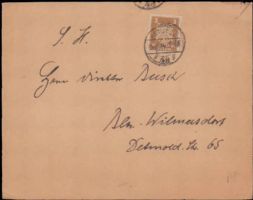 S. H.
Herrn Direktor Busch
Bln-Wilmersdorf
Detmold. Str. 65